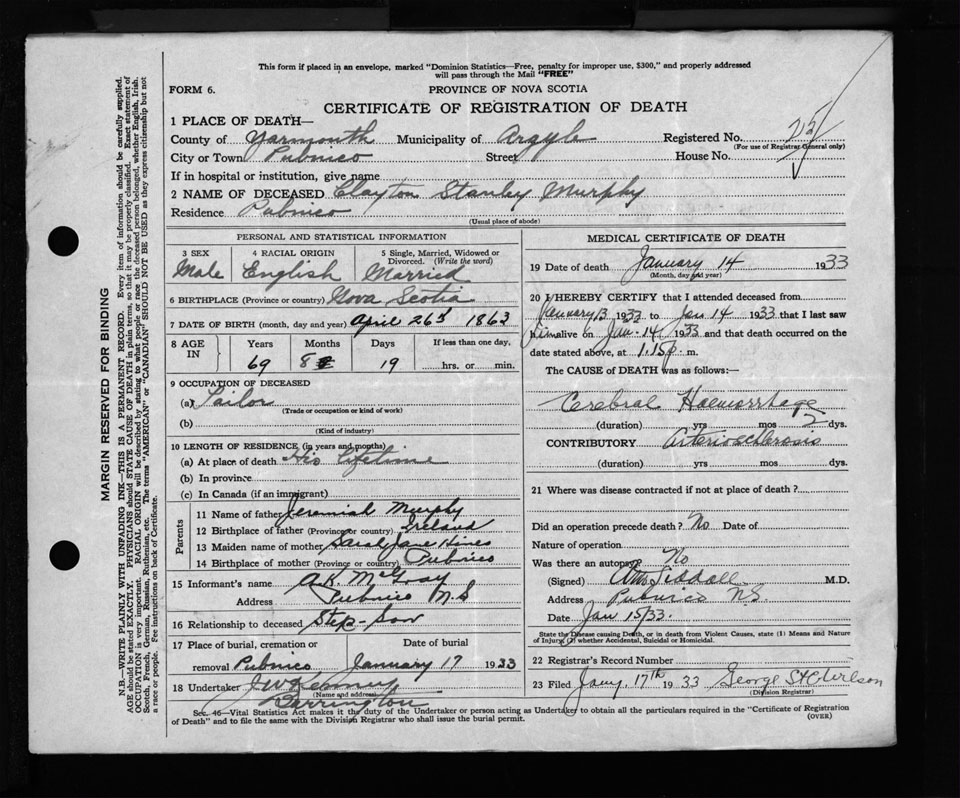 This form if placed in an envelope, marked "Dominion Statistics—Free, penalty for improper use, $300," and properly addressed
will pass through the Mail "FREE"
FORM 6.
PROVINCE OF NOVA SCOTIA
CERTIFICATE OF REGISTRATION OF DEATH
1 PLACE OF DEATH—
County of Yarmouth Municipality of Argyle Registered No.
(For use of Registrar General only)
City or Town Pubnico Street House No.
If in hospital or institution, give name
2 NAME OF DECEASED Clayton Stanley Murphy
Residence Pubnico
(Usual place of abode)
PERSONAL AND STATISTICAL INFORMATION
3 SEX 4 RACIAL ORIGIN 5 Single, Married, Widowed or
Divorced. (Write the word)
Male English Married
6 BIRTHPLACE (Province or country) Nova Scotia
7 DATE OF BIRTH (month, day and year) April 26th 1863
8 AGE IN Years Months Days If less than one day,
69 8 19 hrs. or min.
9 OCCUPATION OF DECEASED
(a) Sailor
(Trade or occupation or kind of work)
(b)
(Kind of industry)
10 LENGTH OF RESIDENCE (in years and months)
(a) At place of death His lifetime
(b) In province
(c) In Canada (if an immigrant)
Parents
11 Name of father Jeremiah Murphy
12 Birthplace of father (Province or country) Ireland
13 Maiden name of mother Sarah Jane Hines
14 Birthplace of mother (Province or country) Pubnico
15 Informant's name A.K. McGray
Address Pubnico N.S
16 Relationship to deceased Step-Son
17 Place of burial, cremation or Date of burial
removal Pubnico January 17 1933
18 Undertaker
(Name and address)
Barrington
MEDICAL CERTIFICATE OF DEATH
19 Date of death January 14 1933
(Month, day and year)
20 I HEREBY CERTIFY that I attended deceased from
January 13 1933 to Jan 14 1933 that I last saw
him alive on Jan. 14 1933 and that death occurred on
date stated above, at 1.15 p. m.
The CAUSE of DEATH was as follows:—
Cerebral Haemorrhage
(duration) yrs mos 2 dys.
CONTRIBUTORY Arteriosclerosis
(duration) yrs mos dys.
21 Where was disease contracted if not at place of death?
Did an operation precede death? No Date of
Nature of operation
Was there an autopsy No
(Signed) Siddall M.D.
Address Pubnico N.S.
Date Jan 15/33.
State the Disease causing Death, or in death from Violent Causes, state (1) Means and Nature
of Injury, (2) whether Accidental, Suicidal or Homicidal.
22 Registrar's Record Number
23 Filed Jany. 17th 1933 George St C Wilson
(Division Registrar)
Sec. 46—Vital Statistics Act makes it the duty of the Undertaker or person acting as Undertaker to obtain all the particulars required in the "Certificate of Registration
of Death" and to file the same with the Division Registrar who shall issue the burial permit.
(OVER)
MARGIN RESERVED FOR BINDING
N.B.—WRITE PLAINLY WITH UNFADING INK—THIS IS A PERMANENT RECORD. Every item of information should be carefully supplied.
AGE should be stated EXACTLY. PHYSICIANS should STATE CAUSE OF DEATH in plain terms, so that it may be properly classified. Exact statement of
OCCUPATION is very important. RACIAL ORIGIN will be described by stating to what people or race the deceased person belonged, whether English, Irish,
Scotch, French, German, Russian, Ruthenian, etc. The terms "AMERICAN" or "CANADIAN" SHOULD NOT BE USED as they express citizenship but not
a race or people. Fee instructions on back of Certificate.